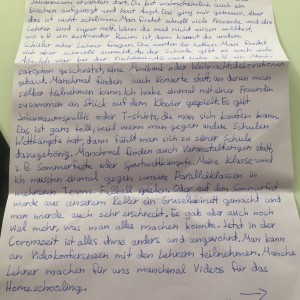 Johanneum erzählen darf. Du bist wahrscheinlich auch ein
bisschen aufgeregt und hast Angst. Das ging mir genauso. Aber
das ist nicht schlimm. Man findet schnell viele Freunde und die
Lehrer sind super nett. Wenn du mal nicht wissen solltest,
wo z.B. ein bestimmter Raum ist, dann kannst du andere
Schüler oder Lehrer fragen. Die werden dir helfen. Man findet
sich aber schnell zurecht.
europäisch geschnitzt, eine Maibaum oder Weihnachtsdekoration
staut. Manchmal finden auch Konzerte statt, an denen man
selbst teilnehmen kann. Ich habe einmal mit einer Freundin
zusammen ein Stück auf dem Klavier gespielt. Es gibt
Johanneumspullis oder T-shirts, die man sich kaufen kann.
Das ist ganz toll, weil wenn man gegen andere Schulen
Wettkämpfe hat, dann fühlt man sich zu seiner Schule
dazugehörig. Manchmal finden auch Veranstaltungen statt,
z.B. Sommerfeste oder Sportwettkämpfe. Meine Klasse und
ich mussten einmal gegen unsere Parallelklassen in
mehreren Teams Fußball spielen. Oder auf dem Sommerfest
wurde aus unserem Keller ein Gruselkabinett gemacht und
man wurde auch sehr erschreckt. Es gab aber auch noch
viel mehr, was man alles machen konnte. Jetzt in der
Coronazeit ist alles etwas anders und ungewohnt. Man kann
an Videokonferenzen mit den Lehrern teilnehmen. Manche
Lehrer machen für uns manchmal Videos für das
Homeschooling.
→